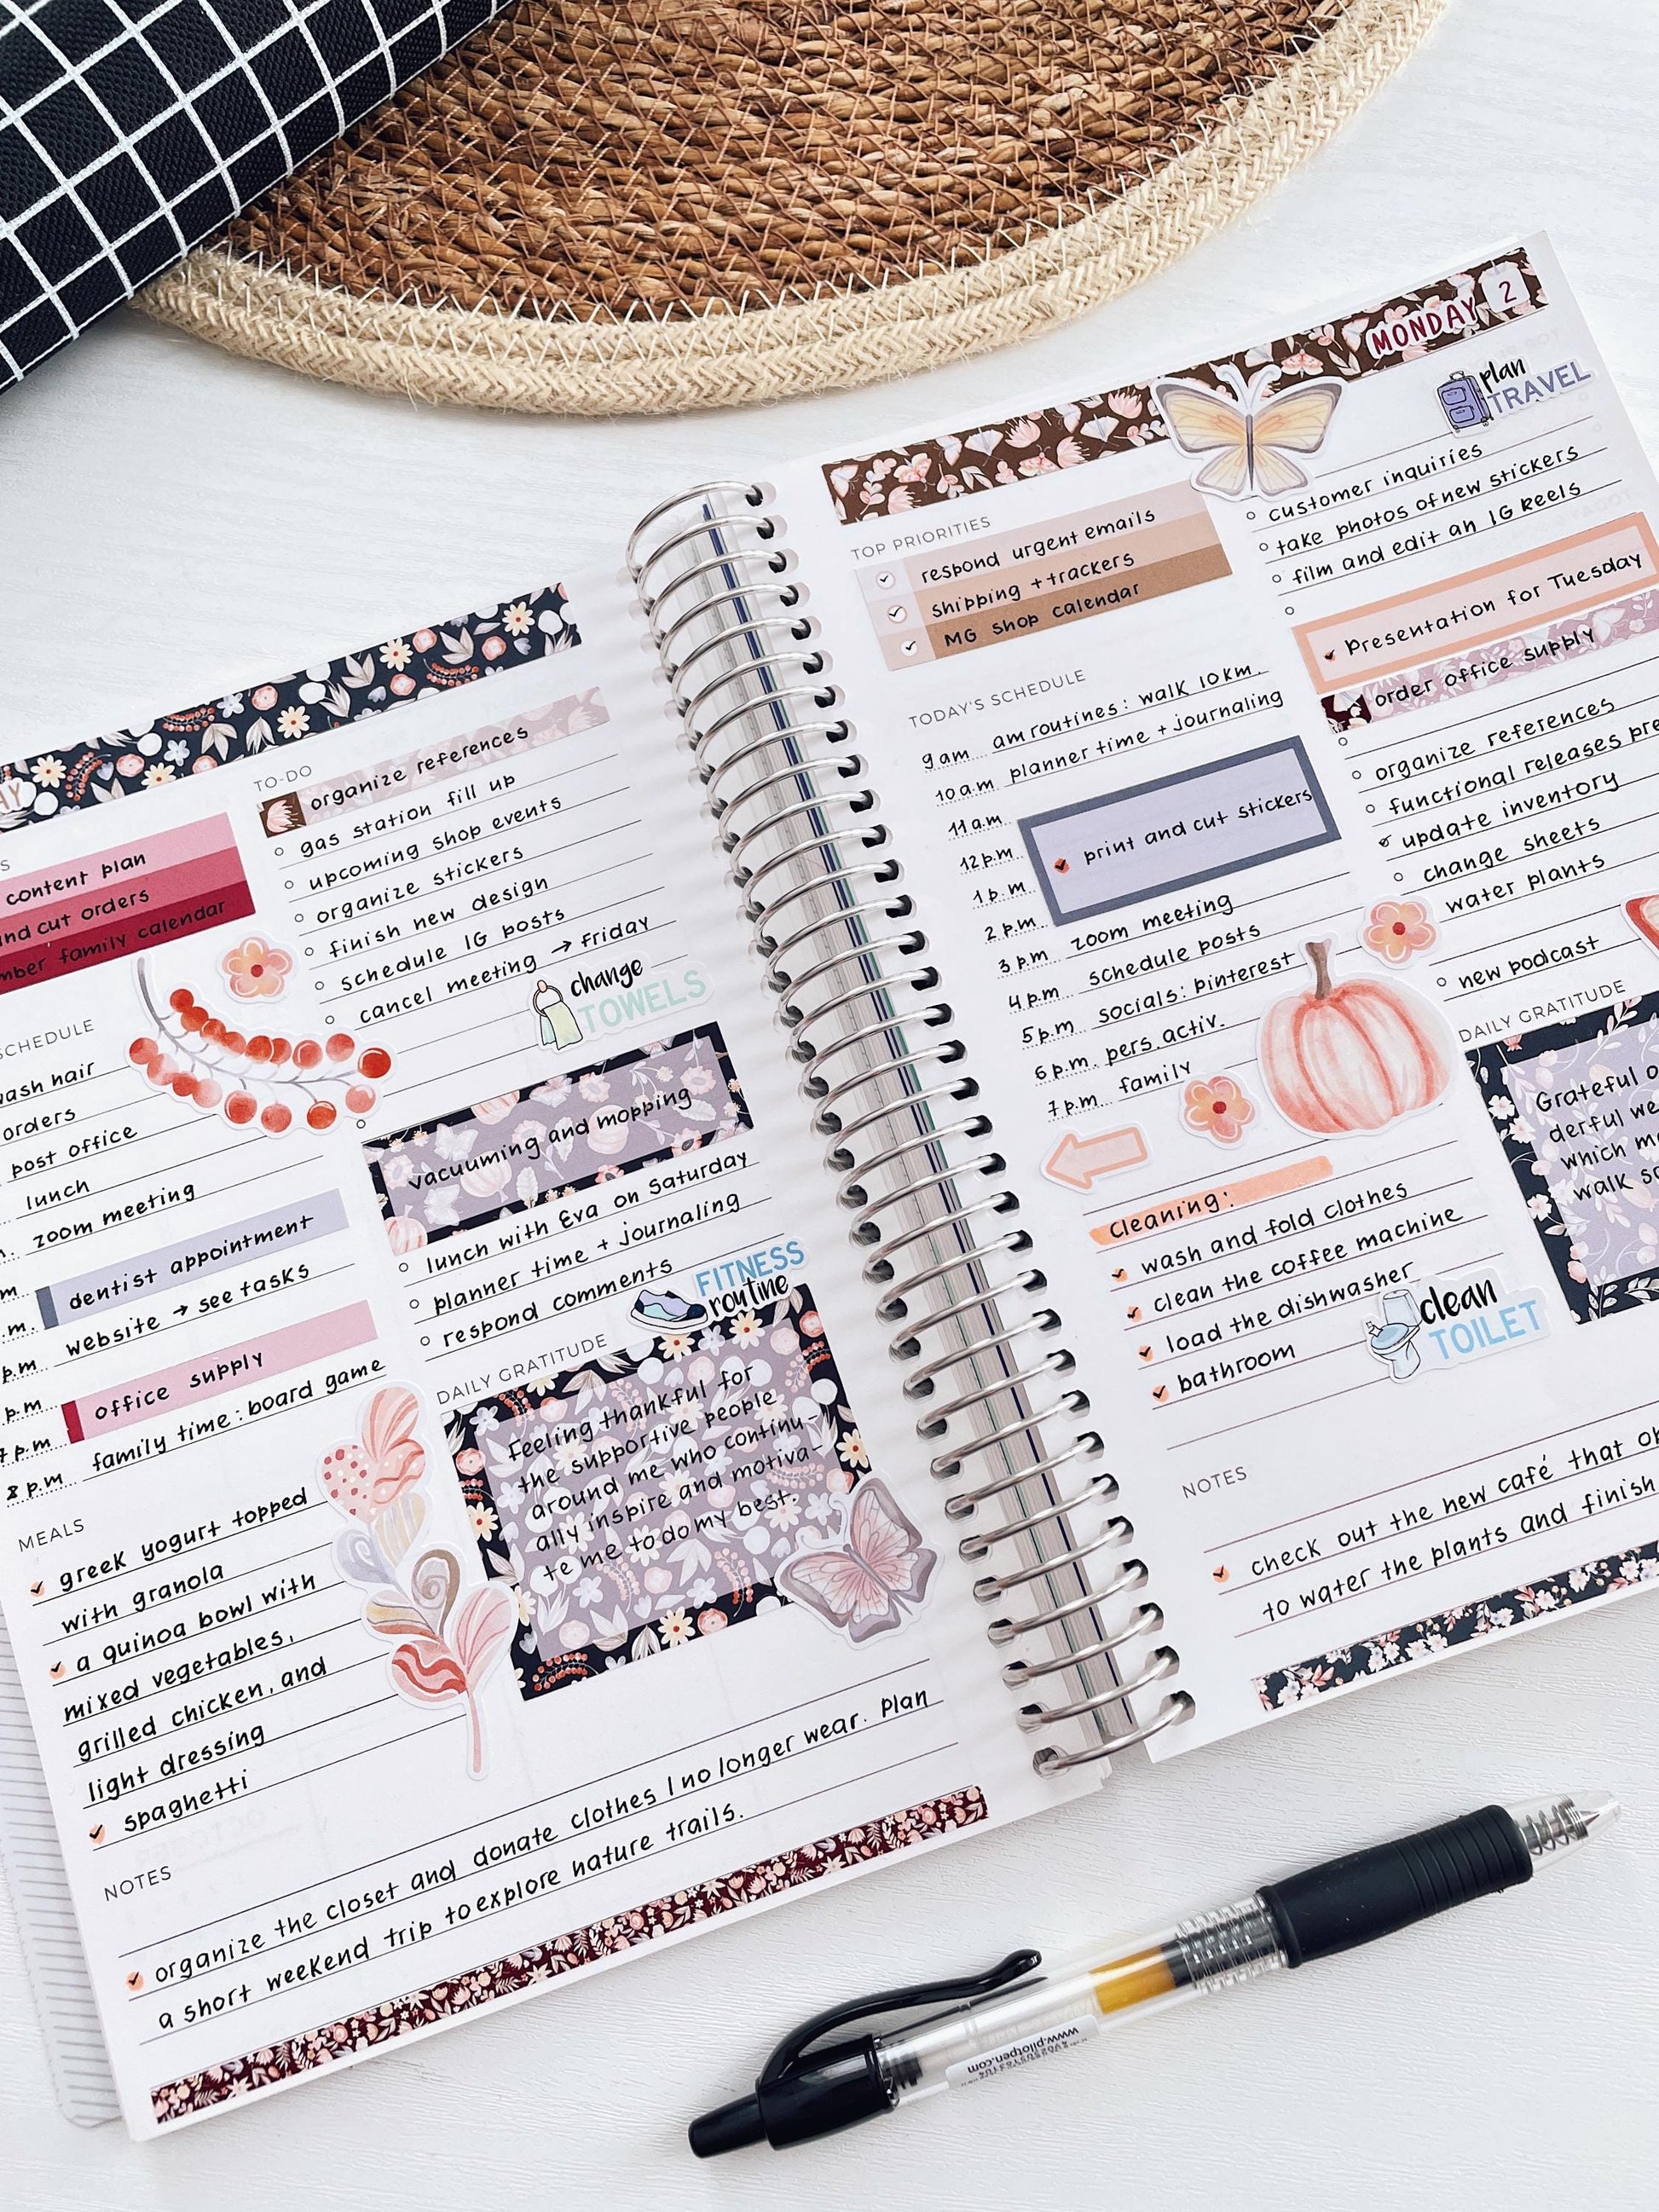 content plan
and cut orders
family calendar
SCHEDULE
wash hair
orders
post office
lunch
zoom meeting
dentist appointment
website → see tasks
office supply
7 p.m
family time: board game
8 p.m.
MEALS
greek yogurt topped
with granola
a quinoa bowl with
mixed vegetables,
grilled chicken, and
light dressing
spaghetti
TO-DO
organize references
gas station fill up
upcoming shop events
organize stickers
finish new design
schedule IG posts
cancel meeting → Friday
change
TOWELS
vacuuming and mopping
lunch with Eva on Saturday
planner time + journaling
respond comments
FITNESS
routine
DAILY GRATITUDE
Feeling thankful for
the supportive people
around me who continu-
ally inspire and motiva-
te me to do my best.
NOTES
organize the closet and donate clothes I no longer wear. Plan
a short weekend trip to explore nature trails.
MONDAY 2
TOP PRIORITIES
respond urgent emails
shipping + trackers
MG shop calendar
TODAY'S SCHEDULE
9 a.m. am routines: walk 10 km.
10 a.m. planner time + journaling
11 a.m.
12 p.m. print and cut stickers
1 p.m.
2 p.m. zoom meeting
3 p.m. schedule posts
4 p.m. socials: pinterest
5 p.m. pers. activ.
6 p.m. family
7 p.m.
Cleaning:
wash and fold clothes
clean the coffee machine
load the dishwasher
bathroom
clean
TOILET
plan
TRAVEL
customer inquiries
take photos of new stickers
film and edit an IG Reels
Presentation for Tuesday
order office supply
organize references
functional releases
update inventory
change sheets
water plants
new podcast
DAILY GRATITUDE
Grateful
derful
which
walk
NOTES
check out the new café that
to water the plants and finish
www.pilotpen.com